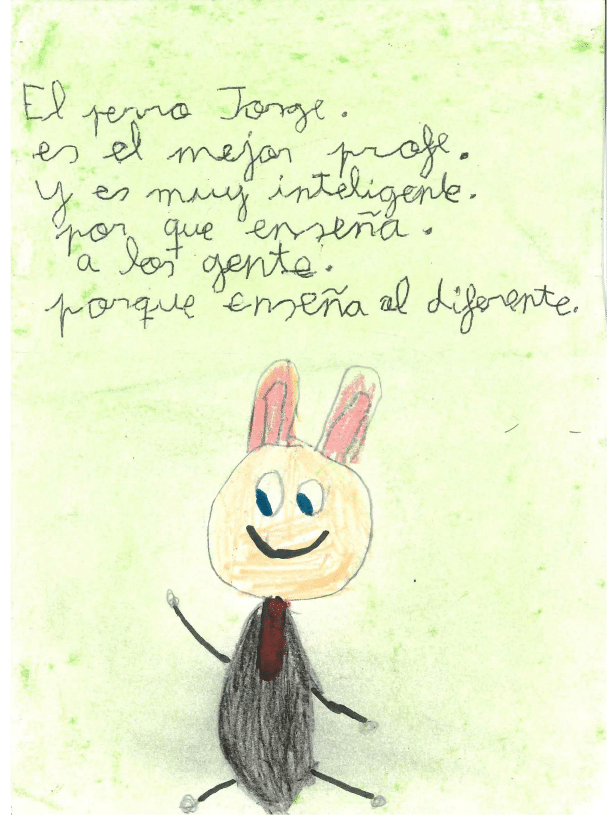 El perro Jorge.
es el mejor profe.
Y es muy inteligente.
por que enseña.
a los gente.
porque enseña al diferente.